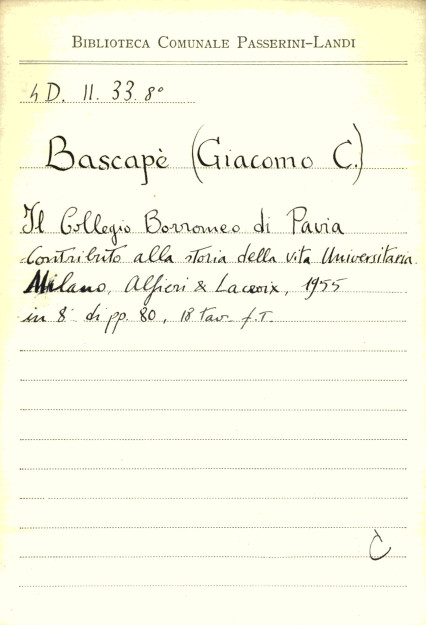 BIBLIOTECA COMUNALE PASSERINI-LANDI
4 D. II. 33. 8°
Bascapè (Giacomo C.)
Il Collegio Borromeo di Pavia
Contributo alla storia della vita Universitaria.
Milano, Alfieri & Lacroix, 1955
in 8° di pp. 80, 18 tav. f.T.
C